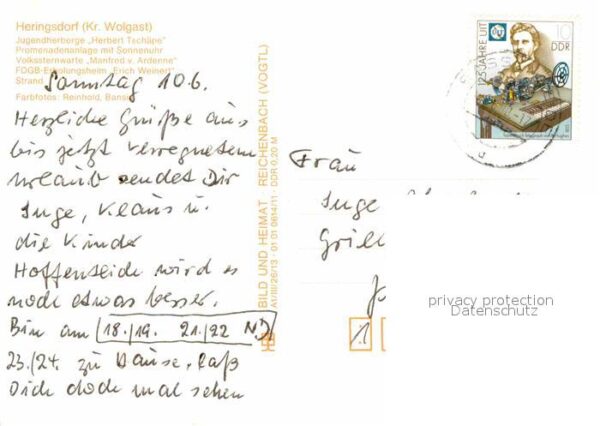 Heringsdorf (Kr. Wolgast)
Jugendherberge „Herbert Tschäpe"
Promenadenanlage mit Sonnenuhr
Volkssternwarte „Manfred v. Ardenne"
FDGB-Erholungsheim „Erich Weinert"
Strand
Farbfotos: Reinhold, Bansin
Sonntag 10.6.
Herzliche Grüße aus
bis jetzt verregnetem
Urlaub sendet Dir
Inge, Klaus u.
die Kinder
Hoffentlich wird es
noch etwas besser.
Bin am 18./19. 21./22 ND
23./24. zu Hause. Laß
Dich doch mal sehen
BILD UND HEIMAT REICHENBACH (VOGTL)
A1/III/26/13 · 01 01 0614/11 · DDR 0,20 M
125 JAHRE UIT
10
DDR
Frau
Inge
privacy protection
Datenschutz
1